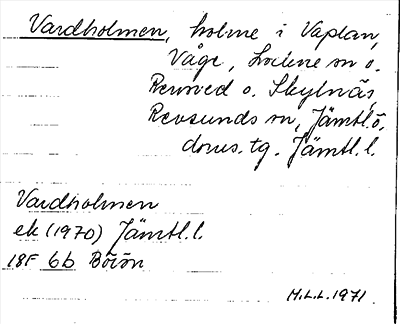 Vardholmen, holme i Vaplan,
Våge, Lockne sn o.
Remmed o. Skylnäs,
Revsunds sn, Jämtl. ö.
doms. tg. Jämtl. l.
Vardholmen
ek (1970) Jämtl. l.
18F 6b Bölön
M.L.L. 1971